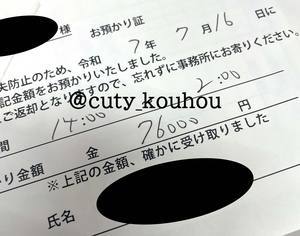 様 お預かり証
失防止のため、令和 7年 7月 16日に
記金額をお預かりいたしました。
ご返却となりますので、忘れずに事務所にお寄りください。
@cuty kouhou
間 14:00 2:00
り金額 金 76000 円
※上記の金額、確かに受け取りました
氏名